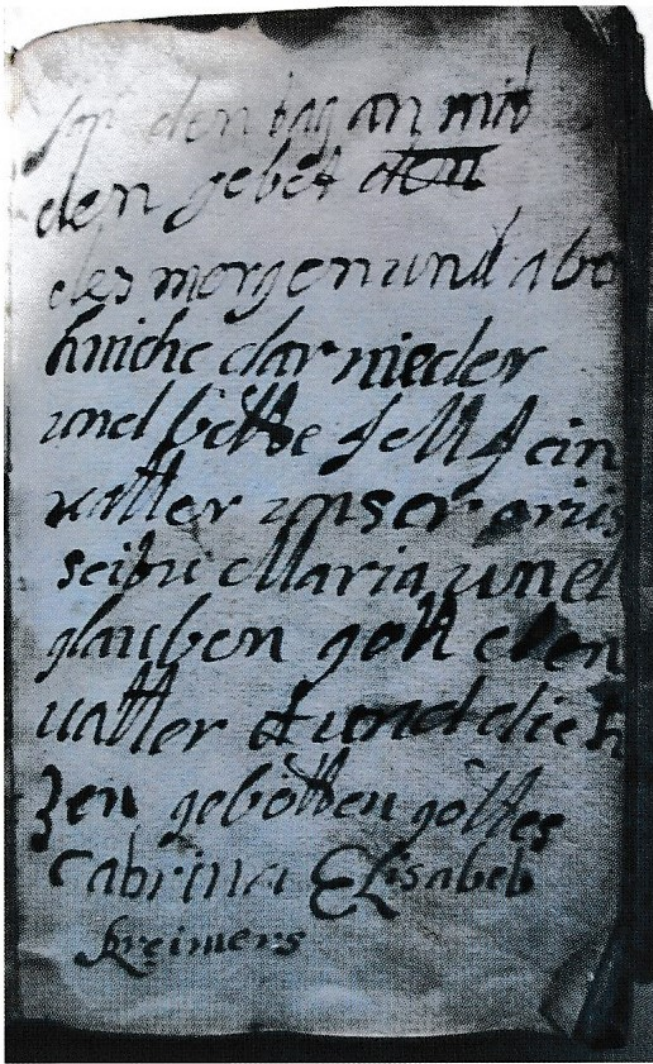 den tag an mit
den gebet den
des morgen und abo
kniche dar nieder
und bette ein
vatter unser grus
seibu Maria und
glauben gott den
vatter und die h
zen gebotten gottes
Cabrina ELisabeb
kreimers